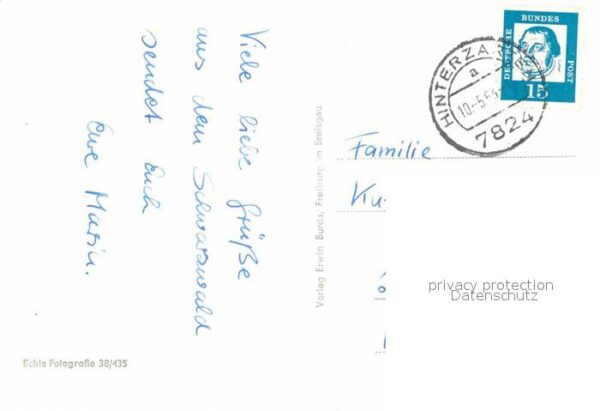 Viele liebe Grüße
aus dem Schwarzwald
sendet Euch
Eure Maria.
Echte Fotografie 38/435
Verlag Erwin Burda, Freiburg im Breisgau
DEUTSCHE
BUNDES
POST
15
HINTERZARTEN
a
10.-5.64
7824
Familie
Ku
privacy protection
Datenschutz